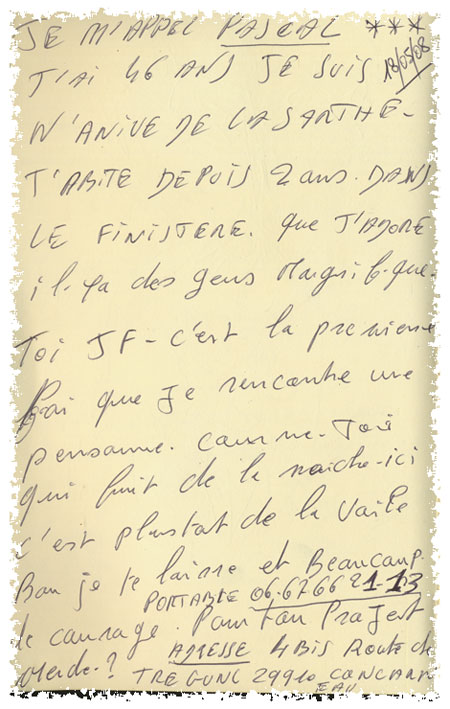 JE M'APPEL PASCAL ***
18/05/08
J'AI 46 ANS JE SUIS
N'ANIVE DE LA SARTHE-
J'ABITE DEPUIS 2 ans. DANS
LE FINISTERE. que J'ADORE
il-ya des gens Magnifique.
Toi JF- c'est la premiere
Foi que je rencontre une
personne. comme-Toi
qui fait de la marche-ici
c'est plustat de la Vaile
Bon je te laisse et Beaucoup.
PORTABLE 06.67 66 21-13
de courage. Pour ton Projest
ADRESSE 4BIS Route de
TREGUNC 29910 CONCARN
EAU